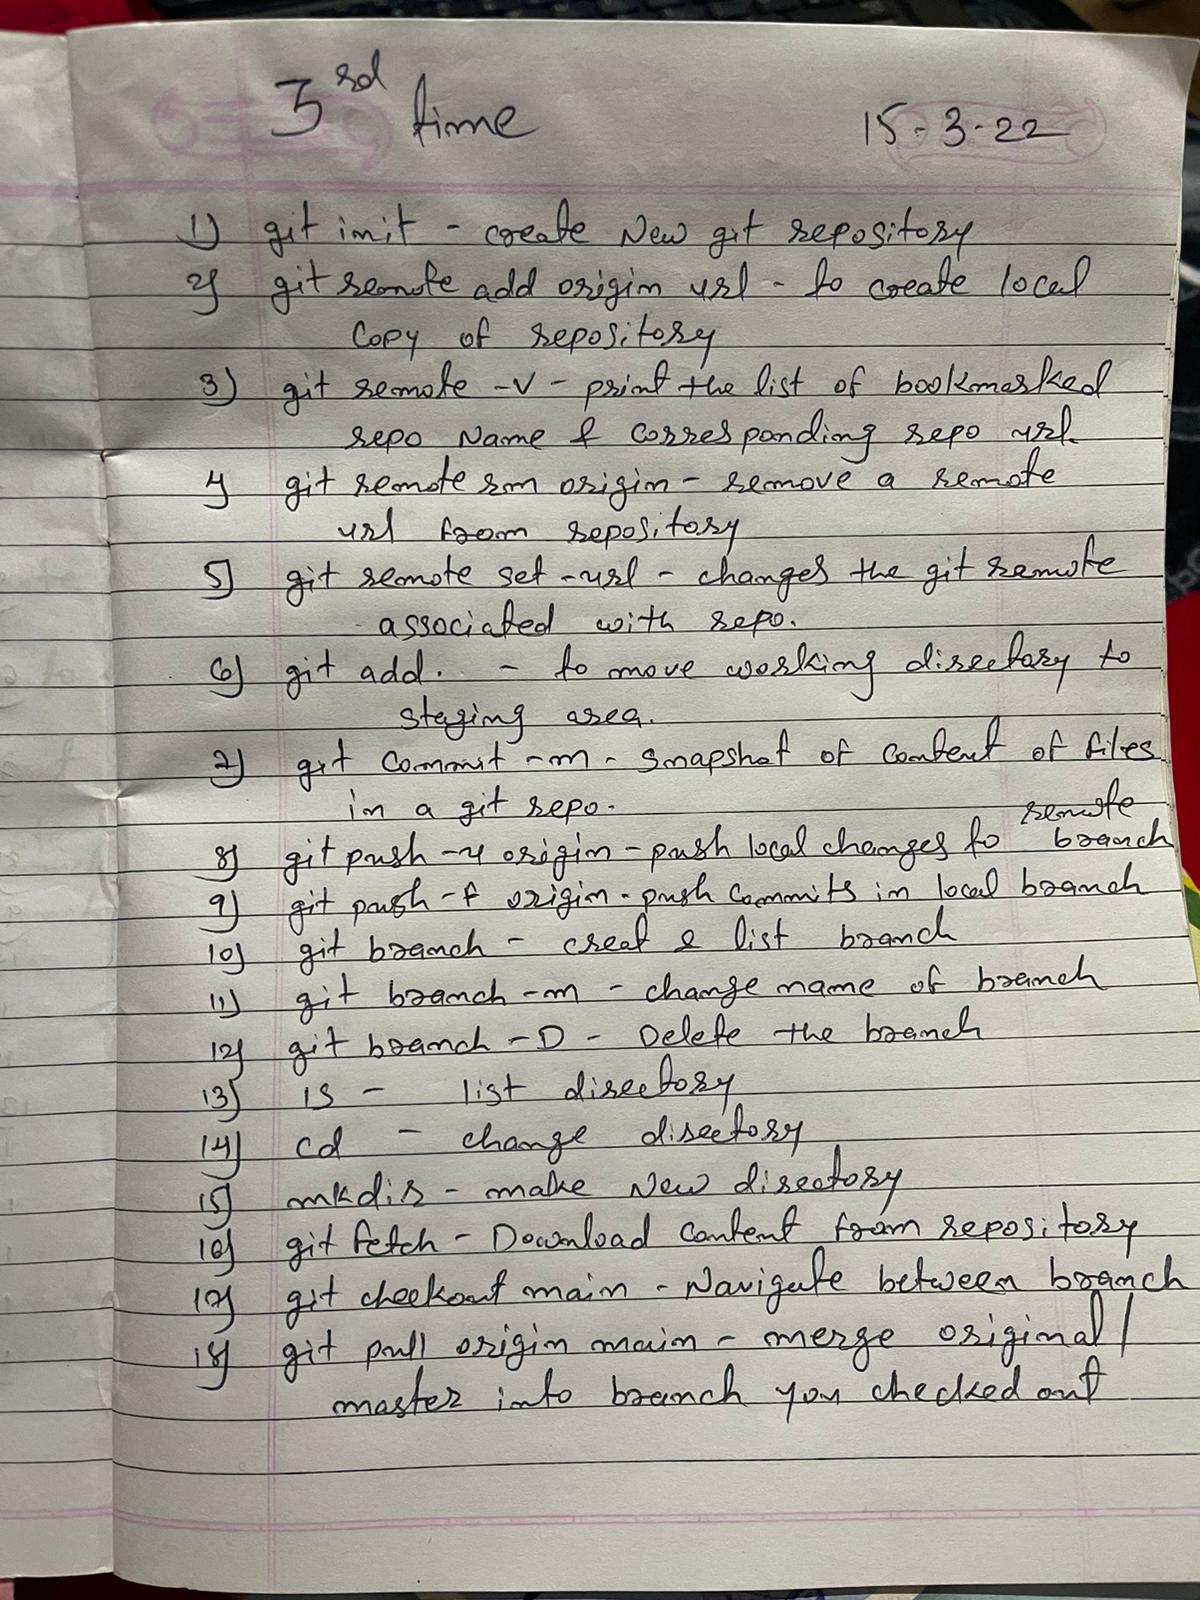 3rd time
15-3-22
1) git init - create New git repository
2) git remote add origin url - to create local
Copy of repository
3) git remote -v - print the list of bookmarked
repo Name & corresponding repo url.
4) git remote rm origin - remove a remote
url from repository
5) git remote set -url - changes the git remote
associated with repo.
6) git add. - to move working directory to
staging area.
7) git commit -m - snapshot of content of files
in a git repo.
8) git push -u origin - push local changes to remote branch
9) git push -f origin - push commits in local branch
10) git branch - creat & list branch
11) git branch -m - change name of branch
12) git branch -D - Delete the branch
13) ls - list directory
14) cd - change directory
15) mkdir - make New directory
16) git fetch - Download content from repository
17) git checkout main - Navigate between branch
18) git pull origin main - merge original/
master into branch you checked out